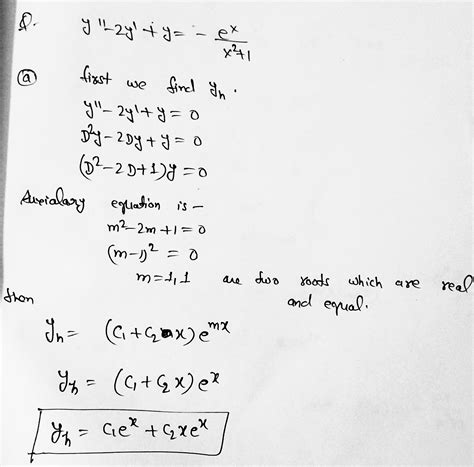 Q. y'' - 2y' + y = - e^x / x²+1
(a) first we find y_h.
y'' - 2y' + y = 0
D²y - 2Dy + y = 0
(D² - 2D + 1)y = 0
Auxialary equation is -
m² - 2m + 1 = 0
(m - 1)² = 0
m = 1, 1 are two roots which are real and equal.
then
y_h = (c₁ + c₂ x) e^{mx}
y_h = (c₁ + c₂ x) e^x
y_h = c₁e^x + c₂xe^x